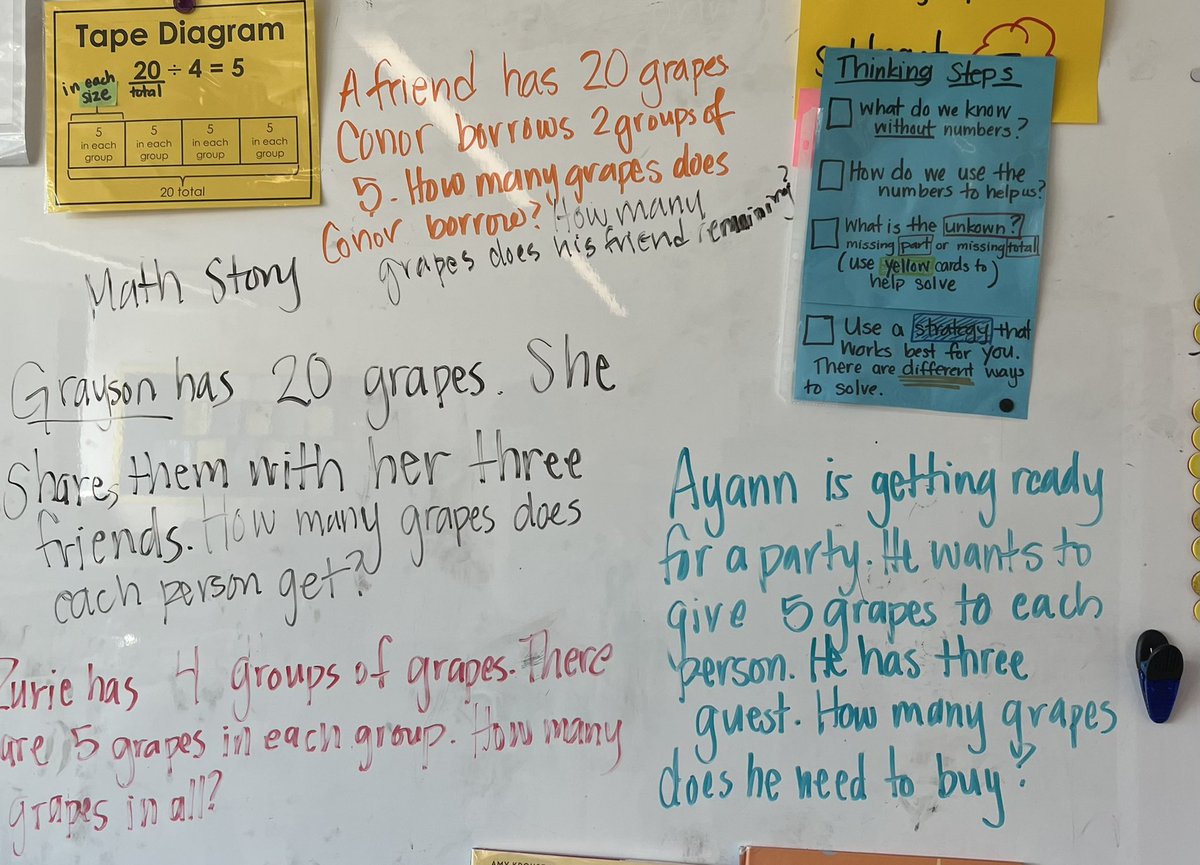 Tape Diagram
in each
size
20 ÷ 4 = 5
total
5 5 5 5
in each in each in each in each
group group group group
20 total
A friend has 20 grapes
Conor borrows 2 groups of
5. How many grapes does
Conor borrow? How many
grapes does his friend remaining?
Math Story
Grayson has 20 grapes. She
Shares them with her three
friends. How many grapes does
each person get?
Zurie has 4 groups of grapes. There
are 5 grapes in each group. How many
grapes in all?
Thinking Steps
What do we know
without numbers?
How do we use the
numbers to help us?
What is the unkown?
missing part or missing total
(use yellow cards to)
help solve
Use a strategy that
works best for you.
There are different ways
to solve.
Ayann is getting ready
for a party. He wants to
give 5 grapes to each
person. He has three
guest. How many grapes
does he need to buy?